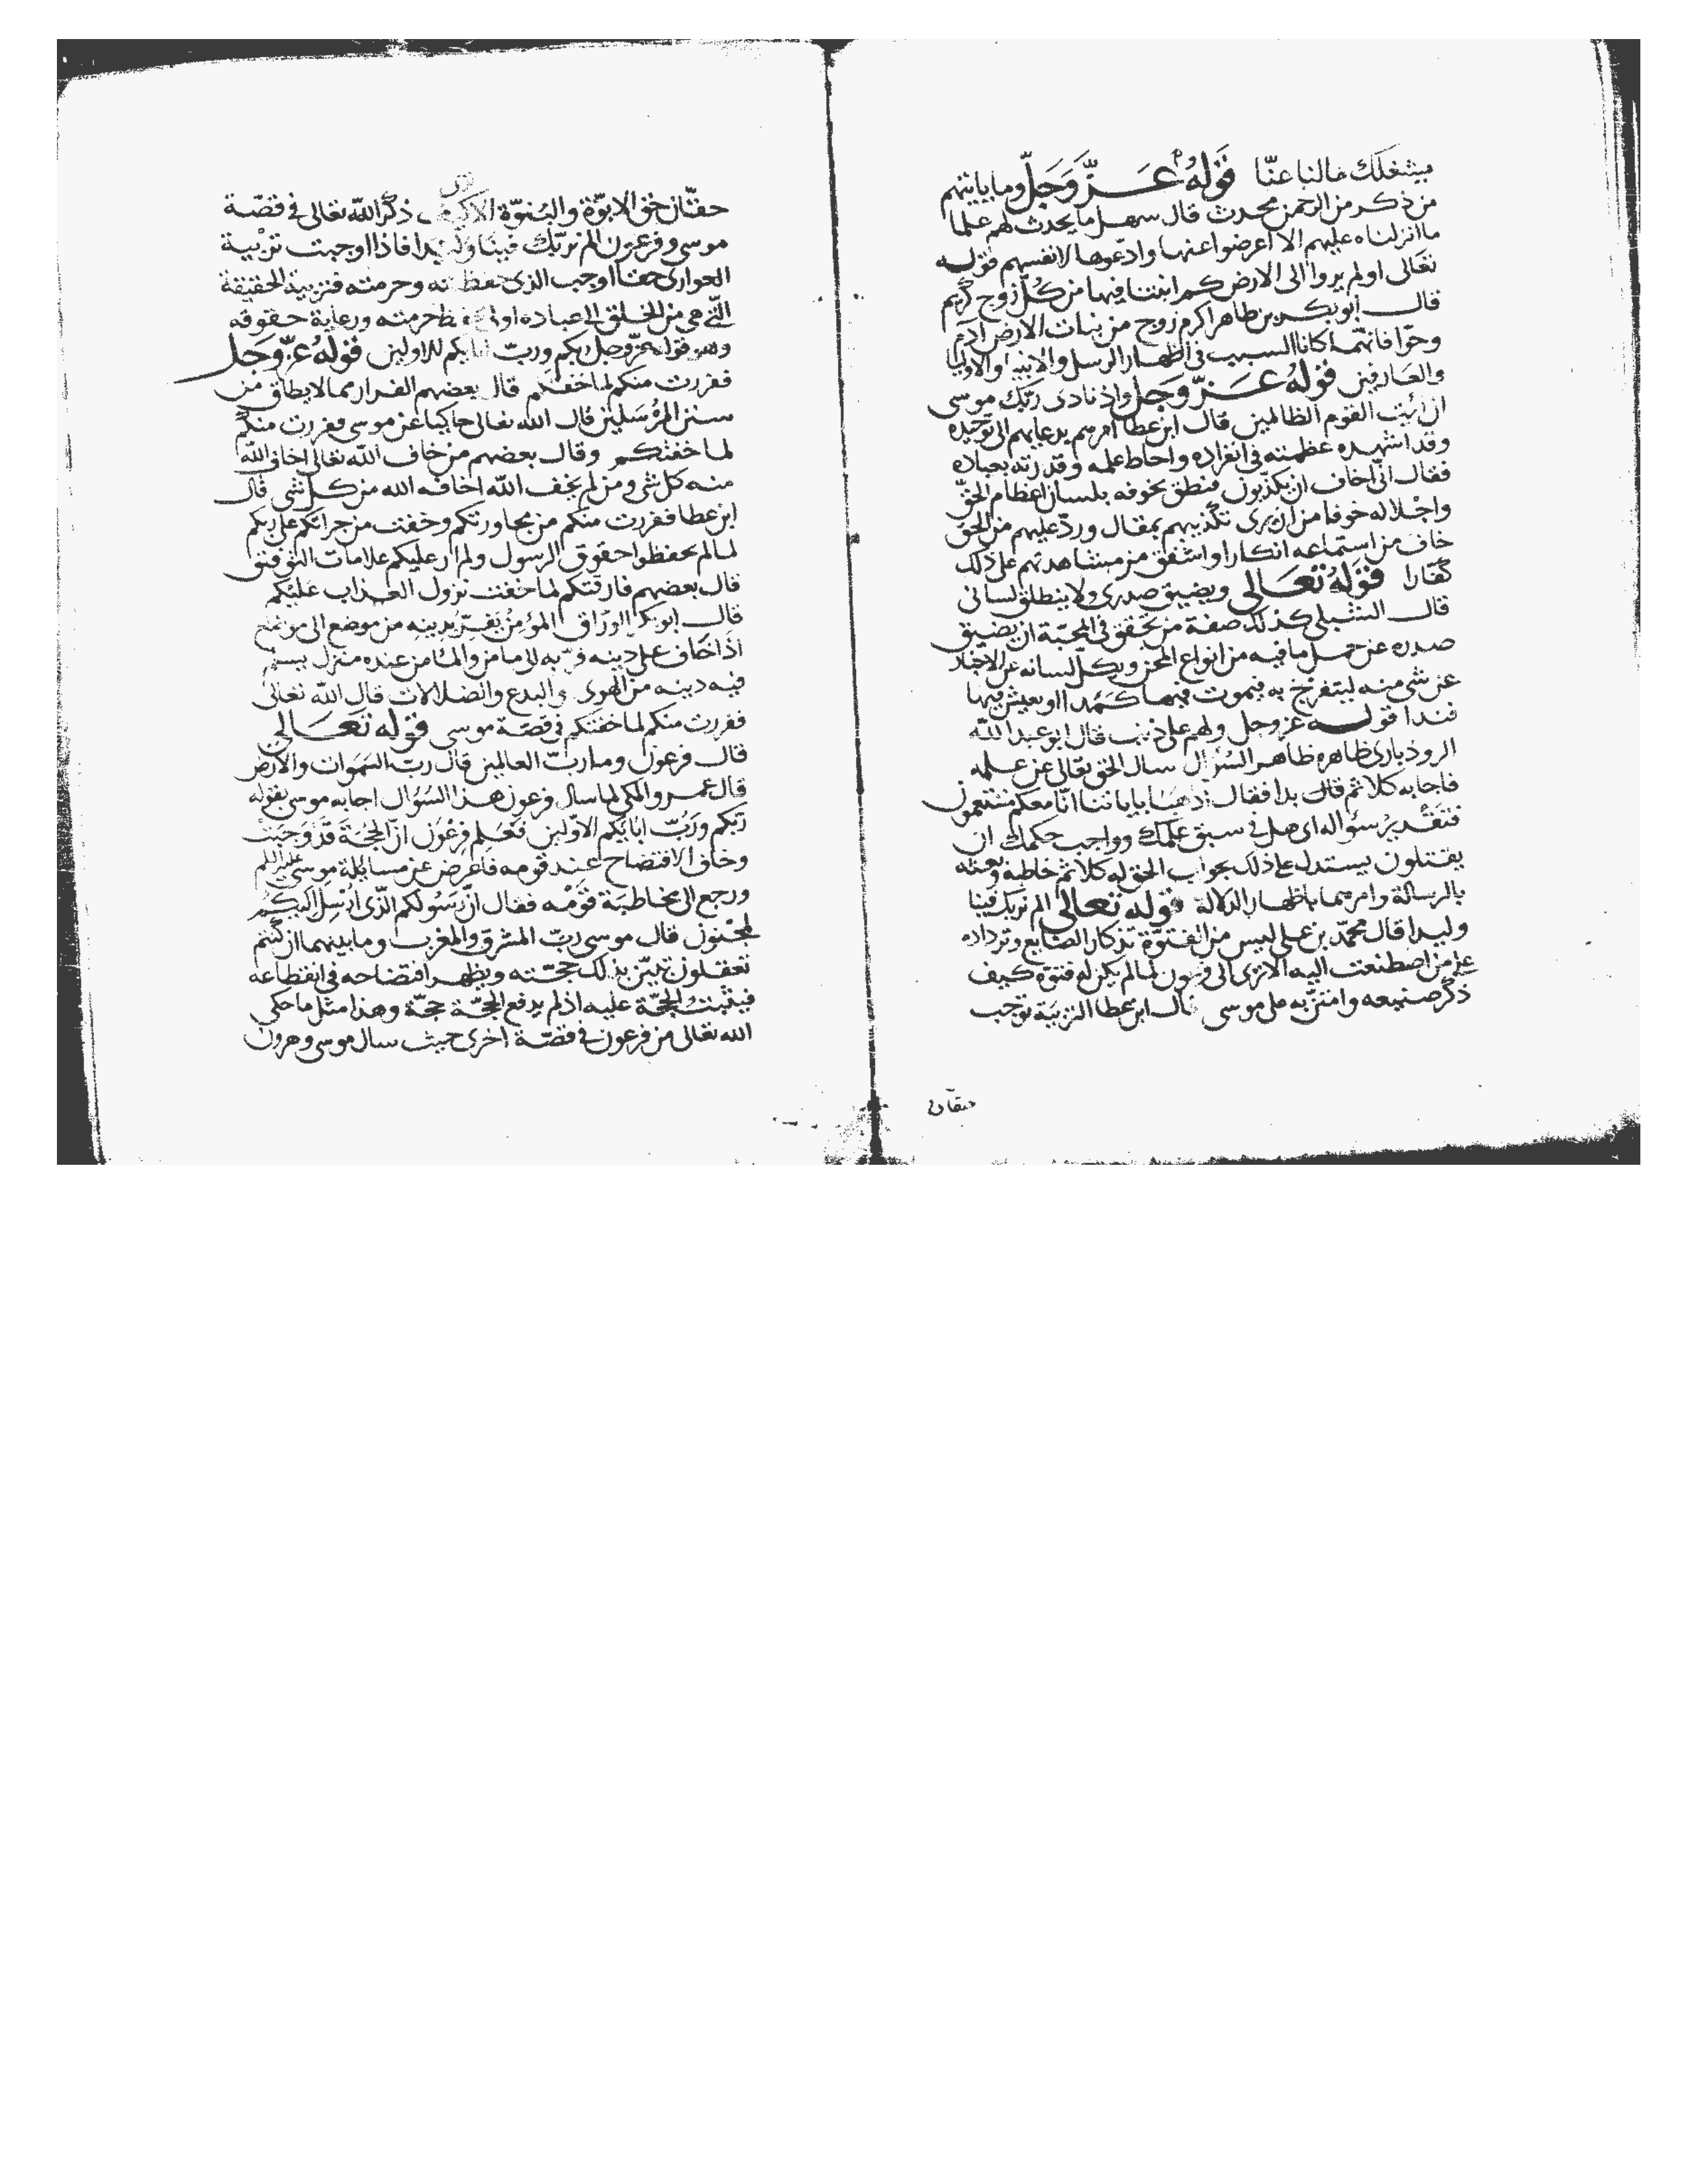 يشغلك مالنا عنّا قَولهُ عَزَّ وَجَلّ وما ياتيهم
من ذكر من الرحمن محدث قال سهل ما يحدث لهم علما
ما انزلناه عليهم الا اعرضوا عنها وادّعوها لانفسهم قوله
تعَالى اولم يروا الى الارض كم انبتنا فيها من كلّ زوج كريم
قال ابو بكر بن طاهر اكرم زوج من بنات الارض ادم
وحوّا فانهما كانا السبب فى اظهار الرسل والانبيا والاوليا
والعَارفين قولهُ عَزّ وجل واذ نادى ربّك موسى
ان ائت القوم الظالمين قال ابن عطا امرهم بدعايهم الى توحيده
وقد اشهده عظمته فى انفراده واحاط علمه وقدرته بعباده
فقال انّى اخاف ان يكذّبون فنطق بخوفه بلسان اعظام الحقّ
واجلاله خوفا من ان يرى تكذيبهم بمقال وردّ عليهم من الحق
خاف من استماعه انكارا واشفق من مشاهدتهم على ذلك
كفّارا قوله تعَالى ويضيق صدرى ولا ينطلق لسانى
قال الشبلى كذلك صفة من تحقق فى المحبّة ان يضيق
صدره عن حمل ما فيه من انواع المحن ويكلّ لسانه عن الاخبار
عن شى منه ليتفرّج به فيموت فيها كمَدا او يعيش فيها
قوله عز وجل ولهم على ذنب قال ابو عبد الله
الروذبارى ظاهره ظاهر السؤال سال الحق تعالى عن علمه
فاجابه كلا ثم قال بدا فقال اذهبَا باياتنا انّا معكم مستمعون
فتقدير سؤاله اى هل فى سبق علمك وواجب حكمك ان
يقتلون يستدل على ذلك بجواب الحق له كلا ثم خاطبه وبعثه
بالرسالة وامرهما باظهار الدلالة قوله تعالى الم نربك فينا
وليدا قال محمّد بن على ليس من الفتوّة تذكار الصنايع وتردادها
على من اصطنعت اليه الا ترى الى فرعون لما لم يكن له فتوة كيف
ذكر صنيعه وامتنّ به على موسى قال ابن عطا التربيَة توجب
حقّان
حقّان حق الابوّة والبُنوّة الا ترى كيف ذكر الله تعالى فى قصّة
موسى وفرعون الم نربّك فينا وليدا فاذا اوجبت تربْية
العوارى حقا اوجب الذى حفظ وحرمته فتربية الحقيقة
الّتى هى من الخلق الى عباده اولى بحفظ حرمته ورعاية حقوقه
وهو قوله عزّ وجل ربكم وربّ ابايكم الاولين قولهُ عزّ وَجَل
ففررت منكم لما خفتكم قال بعضهم الفرار مما لا يطاق من
سنن المرُسَلين قال الله تعالى حاكيا عن موسى ففررت منكم
لما خفتكم وقال بعضهم من خاف الله تعالى اخاف الله
منه كل شى ومن لم يخف الله اخافه الله من كل شى قال
ابن عطا ففررت منكم من مجاورتكم وخفت من جرائكم على ربكم
لما لم تحفظوا حقوق الرسول ولم ار عليكم علامات التوفيق
قال بعضهم فارقتكم لما خفت نزول العذاب عليْكم
قال ابو بكر الورّاق المؤمنُ يَفرّ بدينهِ من موضع الى موضع
اذا خاف على دينه فرّ به الى مامن والمامن عنده منزل يسلم
فيه دينه من الهوى والبدع والضلالات قال الله تعالى
ففررت منكم لما خفتكم فى قصّة موسى قوله تعَالى
قال فرعون وما ربّ العالمين قال ربّ السّمَوات والارض
قال عمرو المكى لما سال فرعون هذا السُؤال اجابه موسى بقوله
ربّكم ورَبّ ابايكم الاوّلين فعَلم فرعْون انّ الحجّة قدْ وجبَتْ
وخاف الافتضاح عند قومه فاعرض عن مسايلة موسى عليه السلم
ورجع الى مخاطبة قومْه فقال انّ رَسُولكم الّذى ارُسلِ اليكم
لمجنون قال موسى ربّ المشرق والمغرب وما بينهما ان كنتم
تعقلون تبيّن بذلك حجّته ويظهر افتضاحه فى انقطاعه
فيثبت الحجّة عليه اذ لم يدفع الحجّة حجّة وهذا مثل ما حكى
الله تعالى من فرعون فى قصّة اخرى حيث سال موسى وهرون